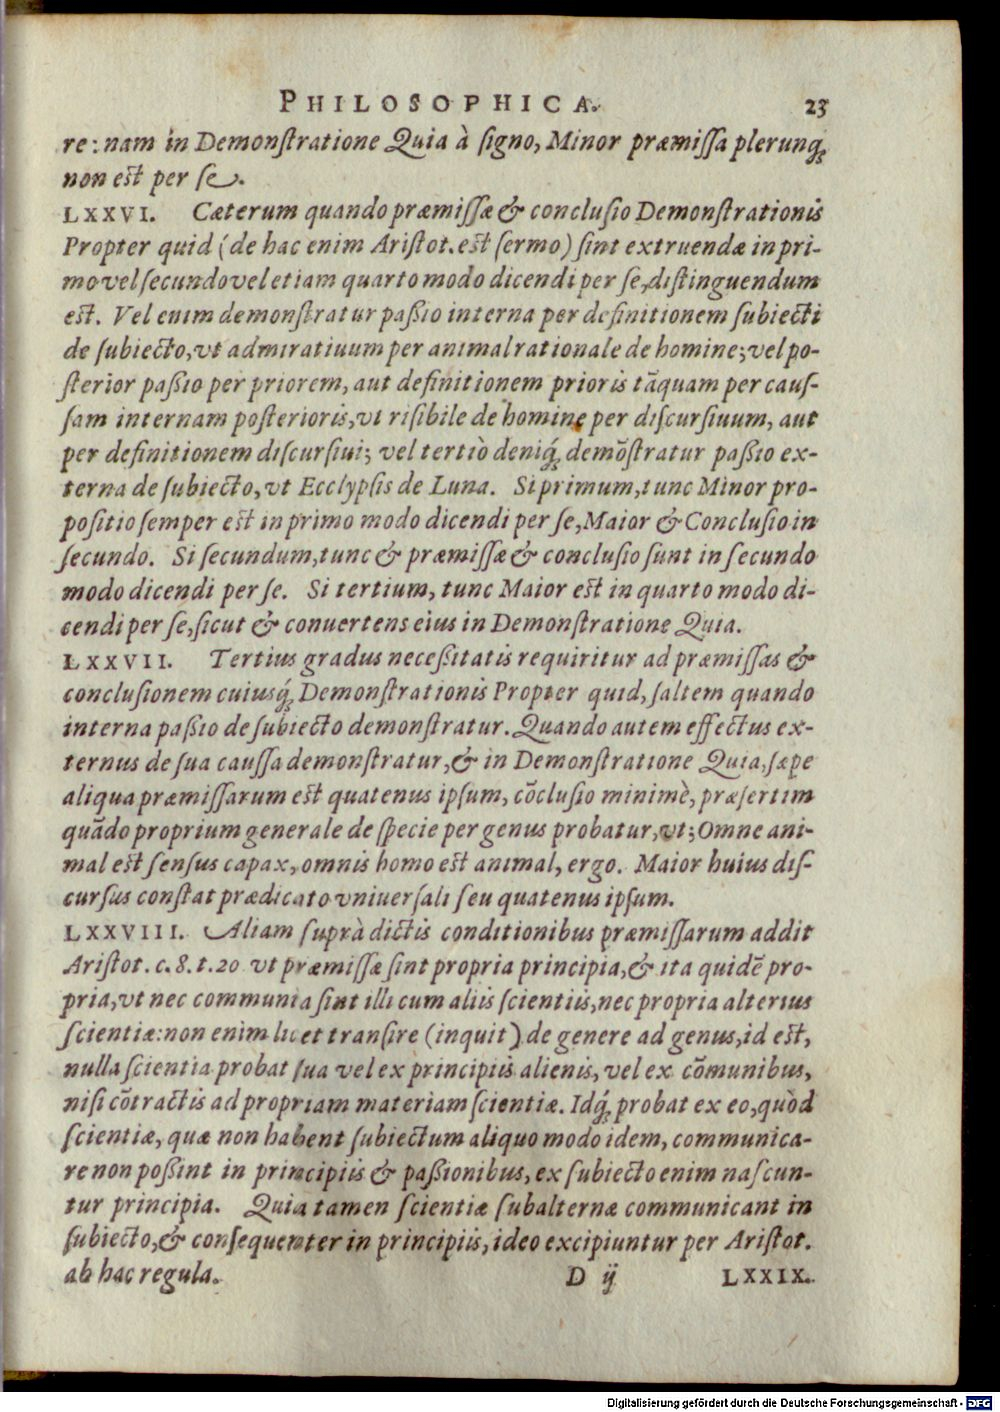 PHILOSOPHICA. 23
re: nam in Demonſtratione Quia à ſigno, Minor præmiſſa plerunq́ꝫ
non eſt per ſe.
LXXVI. Cæterum quando præmiſſæ & concluſio Demonſtrationis
Propter quid (de hac enim Ariſtot. eſt ſermo) ſint extruendæ in pri-
mo vel ſecundo vel etiam quarto modo dicendi per ſe, diſtinguendum
eſt. Vel enim demonſtratur paßio interna per definitionem ſubiecti
de ſubiecto, vt admiratiuum per animal rationale de homine; vel po-
ſterior paßio per priorem, aut definitionem prioris tãquam per cauſ-
ſam internam poſterioris, vt riſibile de homine per diſcurſiuum, aut
per definitionem diſcurſiui; vel tertiò deniq́ꝫ demõſtratur paßio ex-
terna de ſubiecto, vt Ecclypſis de Luna. Si primum, tunc Minor pro-
poſitio ſemper eſt in primo modo dicendi per ſe, Maior & Concluſio in
ſecundo. Si ſecundum, tunc & præmiſſæ & concluſio ſunt in ſecundo
modo dicendi per ſe. Si tertium, tunc Maior eſt in quarto modo di-
cendi per ſe, ſicut & conuertens eius in Demonſtratione Quia.
LXXVII. Tertius gradus neceßitatis requiritur ad præmiſſas &
concluſionem cuiusq́ꝫ Demonſtrationis Propter quid, ſaltem quando
interna paßio de ſubiecto demonſtratur. Quando autem effectus ex-
ternus de ſua cauſſa demonſtratur, & in Demonſtratione Quia, ſæpe
aliqua præmiſſarum eſt quatenus ipſum, cõcluſio minimè, præſertim
quãdo proprium generale de ſpecie per genus probatur, vt; Omne ani-
mal eſt ſenſus capax, omnis homo eſt animal, ergo. Maior huius diſ-
curſus conſtat prædicato vniuerſali ſeu quatenus ipſum.
LXXVIII. Aliam ſuprà dictis conditionibus præmiſſarum addit
Ariſtot. c. 8. t. 20 vt præmiſſæ ſint propria principia, & ita quidẽ pro-
pria, vt nec communia ſint illi cum aliis ſcientiis, nec propria alterius
ſcientiæ: non enim licet tranſire (inquit) de genere ad genus, id eſt,
nulla ſcientia probat ſua vel ex principiis alienis, vel ex cõmunibus,
niſi cõtractis ad propriam materiam ſcientiæ. Idq́ꝫ probat ex eo, quòd
ſcientiæ, quæ non habent ſubiectum aliquo modo idem, communica-
re non poßint in principiis & paßionibus, ex ſubiecto enim naſcun-
tur principia. Quia tamen ſcientiæ ſubalternæ communicant in
ſubiecto, & conſequenter in principiis, ideo excipiuntur per Ariſtot.
ab hac regula. D ij LXXIX.
Digitalisierung gefördert durch die Deutsche Forschungsgemeinschaft - DFG